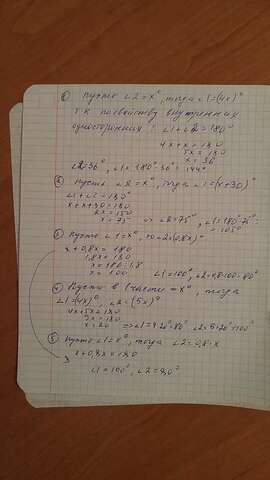 ① Пусть ∠2=x°, тогда ∠1=(4x)°
т.к по свойству внутренних
односторонних: ∠1+∠2=180°
4x+x=180
5x=180
x=36
∠2=36°, ∠1=180°-36°=144°
② Пусть ∠2=x°, тогда ∠1=(x+30)°
∠1+∠2=180°
x+x+30=180
2x=150
x=75 => ∠2=75°, ∠1=180°-75°=
=105°
③ Пусть ∠1=x°, то ∠2=(0,8x)°
x+0,8x=180
1,8x=180
x=180:1,8
x=100 ∠1=100°, ∠2=0,8·100=80°
④ Пусть в 1 части = x°, тогда
∠1=(4x)°, ∠2=(5x)°
4x+5x=180
9x=180
x=20 => ∠1=4·20°=80° ∠2=5·20°=100°
⑤ Пусть ∠1=x°, тогда ∠2=0,8·x
x+0,8x=180
∠1=100°, ∠2=80°